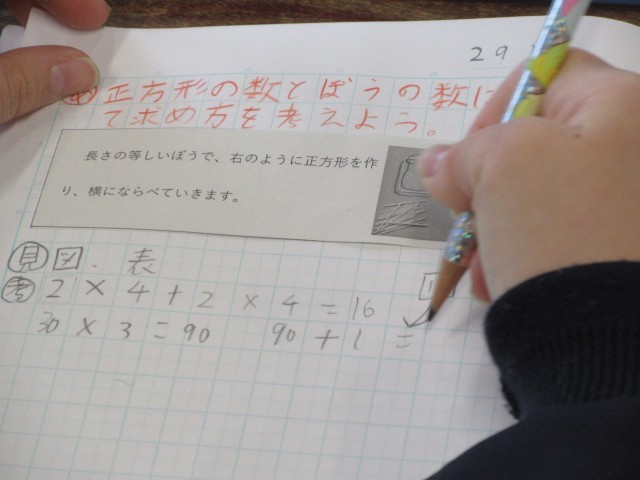 29
正方形の数とぼうの数に
て求め方を考えよう。
長さの等しいぼうで、右のように正方形を作
り、横にならべていきます。
見 図. 表
考 2 × 4 + 2 × 4 = 16
30 × 3 = 90 90 + 1 =